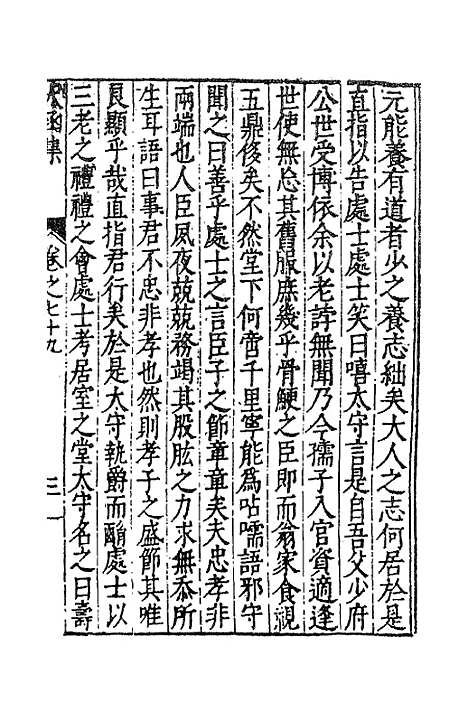 元能養有道者少之養志絀矣大人之志何居於是
直指以告處士處士笑曰嘻太守言是自吾父少府
公世受博依余以老誖無聞乃今孺子入官資適逢
世使無忘其舊服庶幾乎骨鯁之臣即而翁家食視
五鼎侈矣不然堂下何啻千里寧能為呫嚅語邪守
聞之曰善乎處士之言臣子之節童童矣夫忠孝非
兩端也人臣夙夜兢兢務竭其股肱之力求無忝所
生耳語曰事君不忠非孝也然則孝子之盛節其唯
良顯乎哉直指君行矣於是大守執爵而酳處士以
三老之禮禮之會處士考居室之堂太守名之曰壽
函集
卷之七十九
三